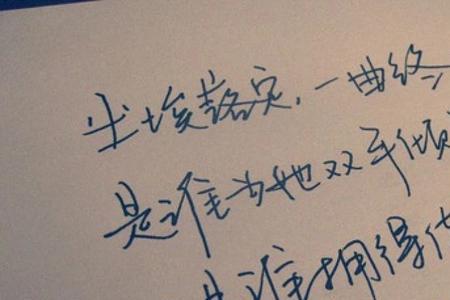 尘埃落定，一曲终
是谁为她双手倾
是谁拥得